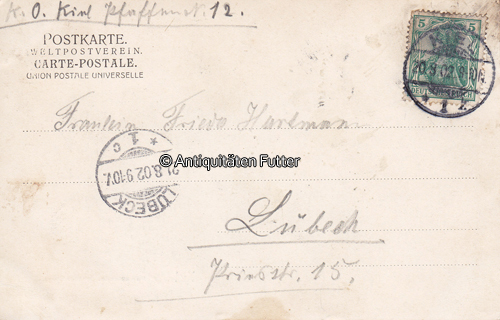 K. O. Kiel Pfaffenstr. 12.
POSTKARTE.
WELTPOSTVEREIN.
CARTE-POSTALE.
UNION POSTALE UNIVERSELLE
5 5
.8.02
* 1 k.
Fräulein Frieda Hartmann
* 1. c
21.8.02.9-10V.
LÜBECK
© Antiquitäten Futter
Lübeck
Prinsstr. 15.